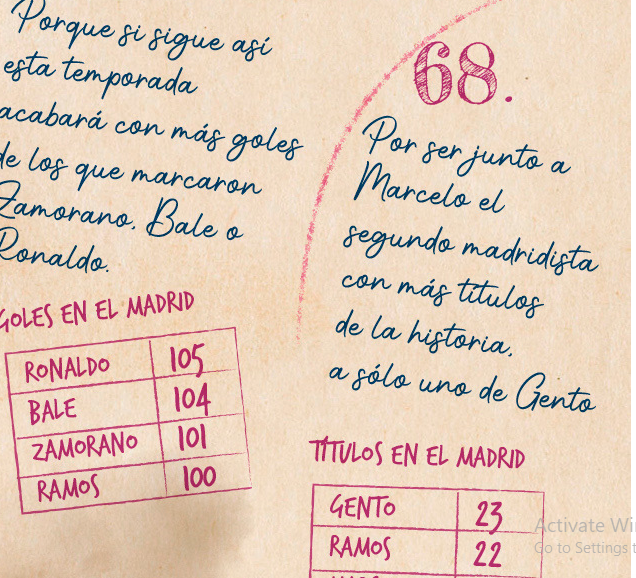 Porque si sigue así
esta temporada
acabará con más goles
de los que marcaron
Zamorano, Bale o
Ronaldo.
GOLES EN EL MADRID
RONALDO 105
BALE 104
ZAMORANO 101
RAMOS 100
68.
Por ser junto a
Marcelo el
segundo madridista
con más títulos
de la historia,
a sólo uno de Gento
TÍTULOS EN EL MADRID
GENTO 23
RAMOS 22
Activate Wi
Go to Settings t